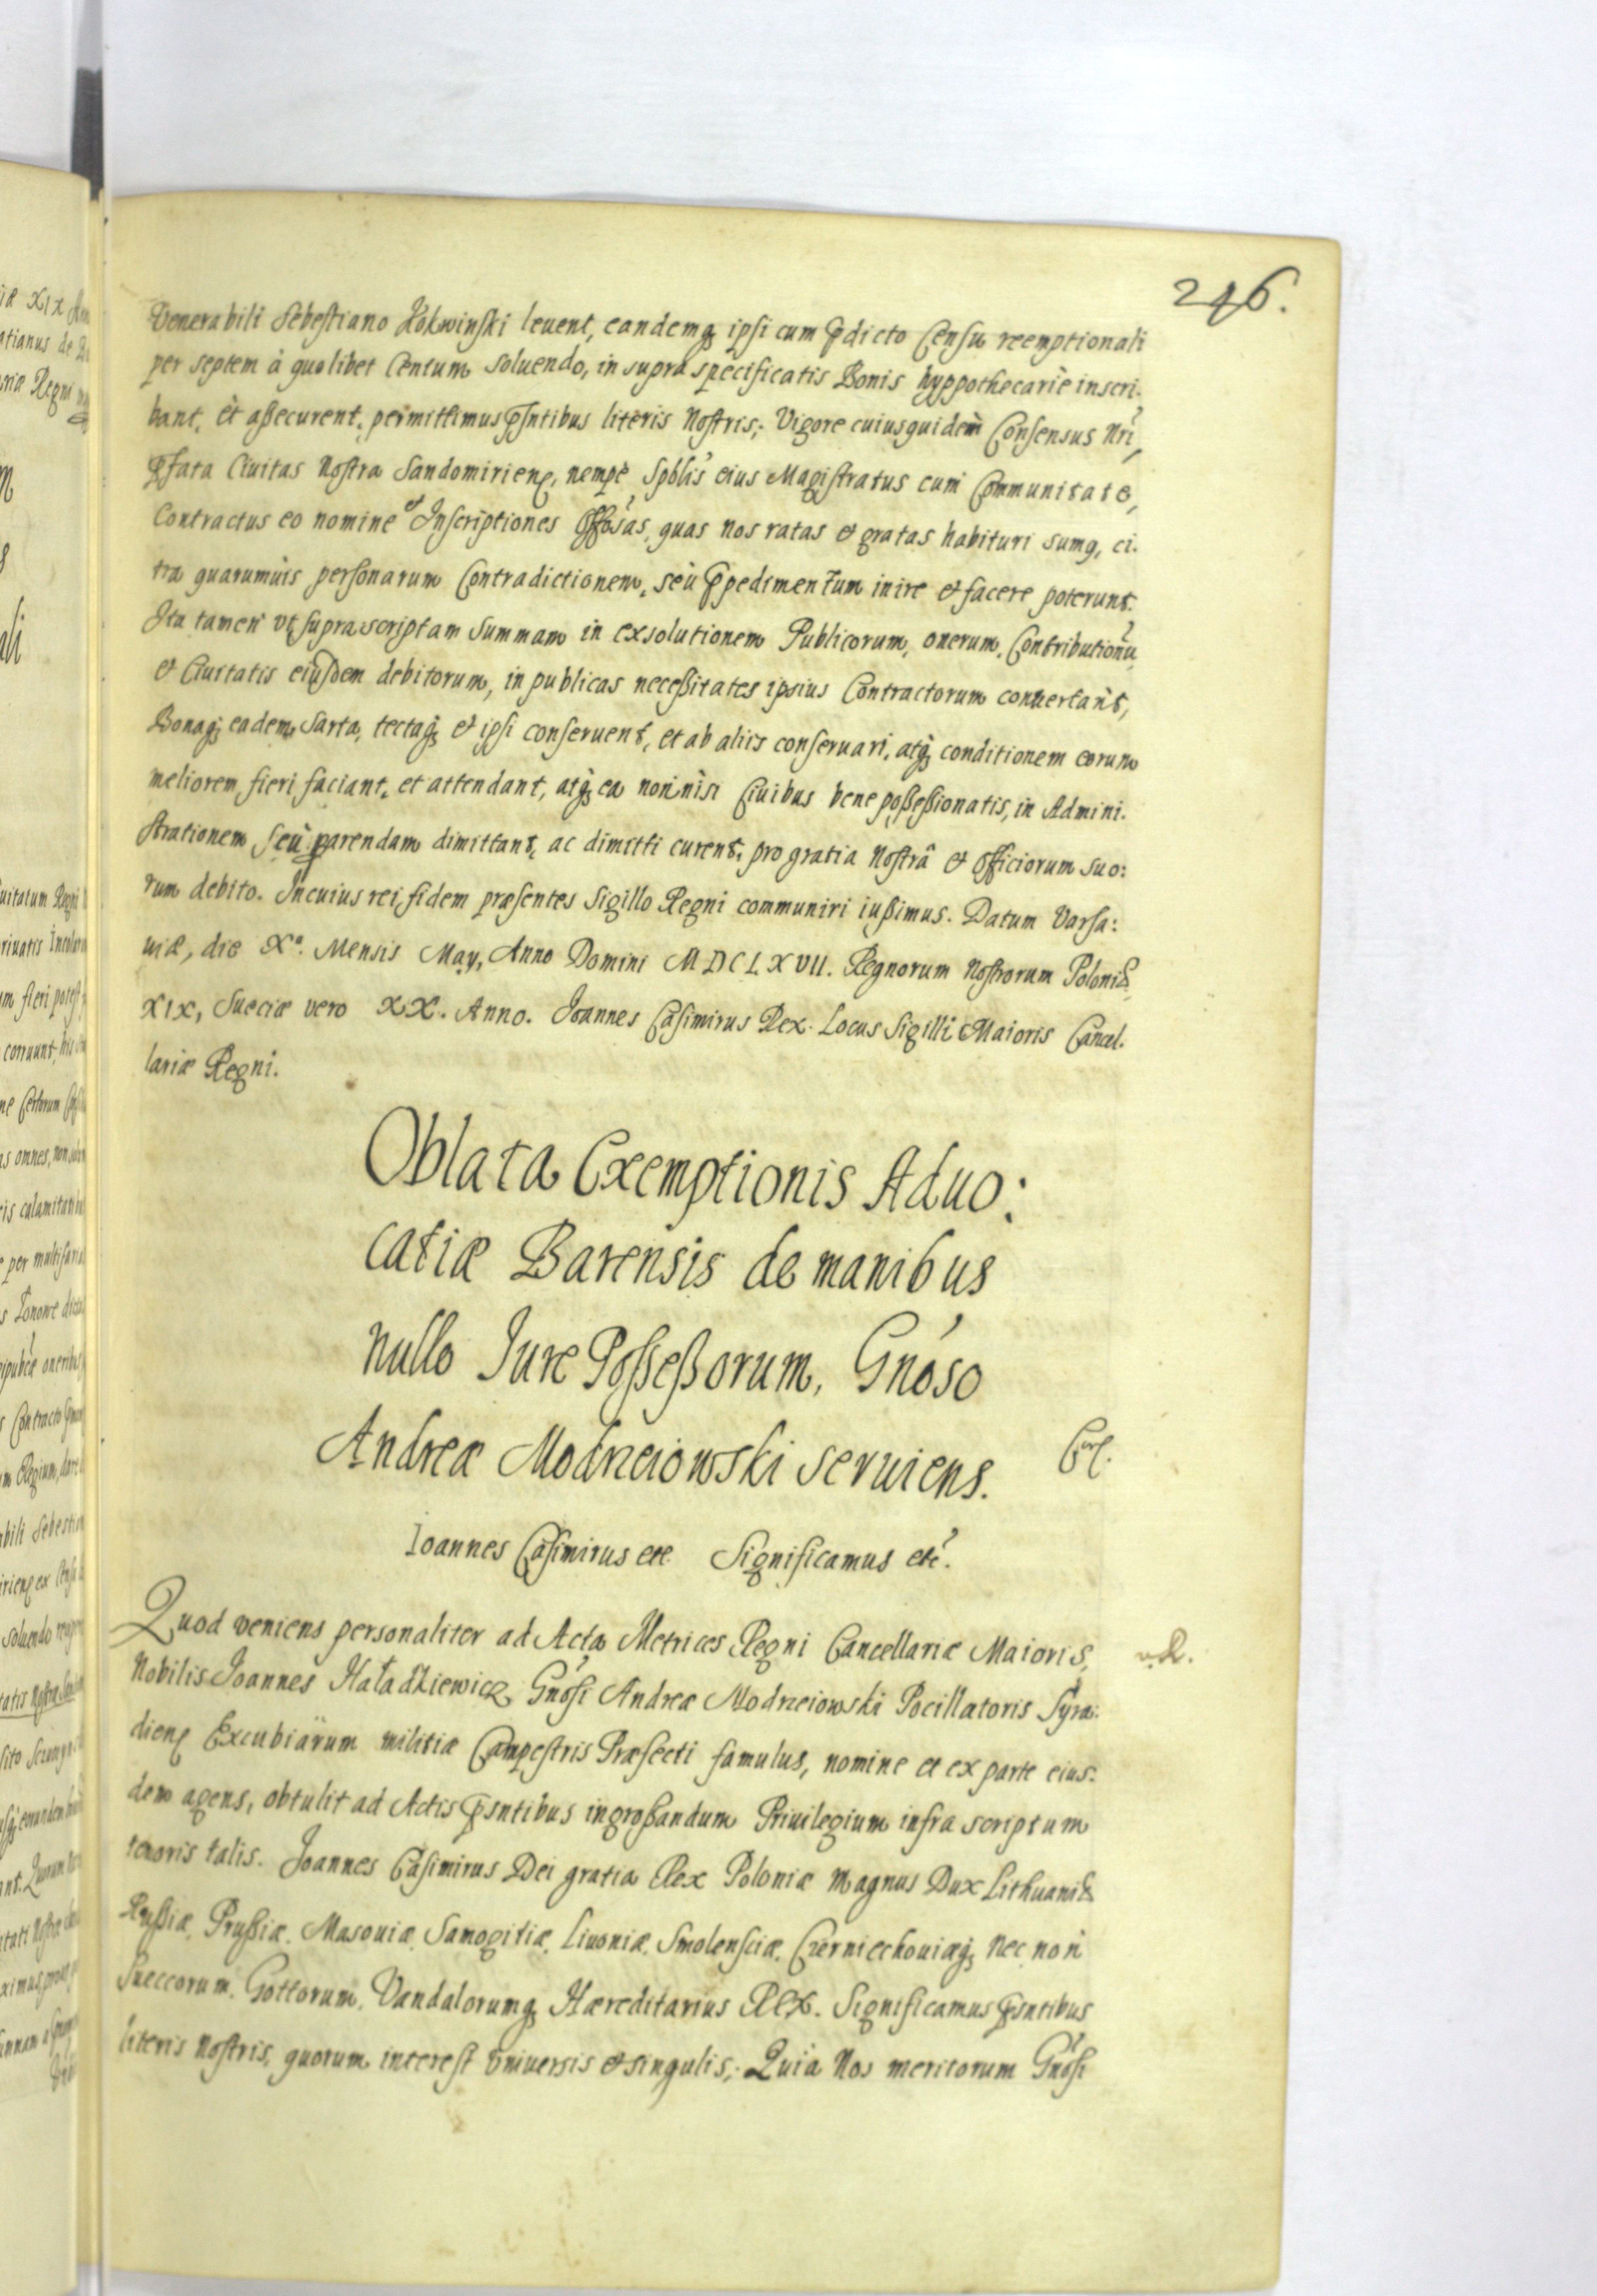 246.
Venerabili Sebestiano Kokwinski leuent, eandemq, ipsi cum pdicto Censu reemptionali
per septem à quolibet Centum soluendo, in supra specificatis Bonis hyppothecariè inscri-
bant, et aßecurent, permittimus psntibus literis Nostris; Vigore cuiusquidem Consensus Nri,
pfata Ciuitas Nostra Sandomirien, nempè Spblis eius Magistratus cum Communitate,
Contractus eo nomine et Inscriptiones Offosas, quas nos ratas et gratas habituri sumq, ci-
tra quarumuis personarum Contradictionem, seù ppedimentum inire et facere poterunt.
Ita tamen vt supra scriptam Summam in exsolutionem Publicorum, onerum, Contributionu,
et Ciuitatis eiusdem debitorum, in publicas neceßitates ipsius Contractorum conuertant,
Bonaq; eadem, Sarta, tectaq; et ipsi conseruent, et ab aliis conseruari, atq; conditionem eorum
meliorem, fieri faciant, et attendant, atq; ea non nisi Ciuibus bene poßeßionatis, in Admini-
strationem seù parendam dimittant, ac dimitti curent, pro gratia Nostrâ et Officiorum suo:
rum debito. In cuius rei, fidem præsentes Sigillo Regni communiri iußimus. Datum Varsa:
uiæ, die Xa. Mensis May, Anno Domini MDCLXVII. Regnorum Nostrorum Poloniæ
XIX, Sueciæ vero XX. Anno. Ioannes Casimirus Rex. Locus Sigilli Maioris Cancel-
lariæ Regni.
Oblata Exemptionis Aduo:
catiæ Barensis de manibus
nullo Iure Poßeßorum, Gnoso
Andreæ Modrzeiowski seruiens.
Ioannes Casimirus etc Significamus etc.
Quod veniens personaliter ad Acta Metrices Regni Cancellariæ Maioris,
Nobilis Ioannes Haładkiewicz, Gnosi Andreæ Modrzeiowski Pocillatoris Syra:
dien Excubiarum militiæ Campestris Præfecti famulus, nomine et ex parte eius:
dem agens, obtulit ad Actis psntibus ingroßandum Priuilegium infra scriptum
tenoris talis. Ioannes Casimirus Dei gratia Rex Poloniæ Magnus Dux Lithuaniæ
Rußiæ, Prußiæ, Masouiæ, Samogitiæ, Liuoniæ, Smolensciæ, Czerniechouiæq; Nec non
Sueccorum, Gottorum, Vandalorumq Hæreditarius REX. Significamus psntibus
literis Nostris, quorum interest vniuersis et singulis; Quia Nos meritorum Gnosi